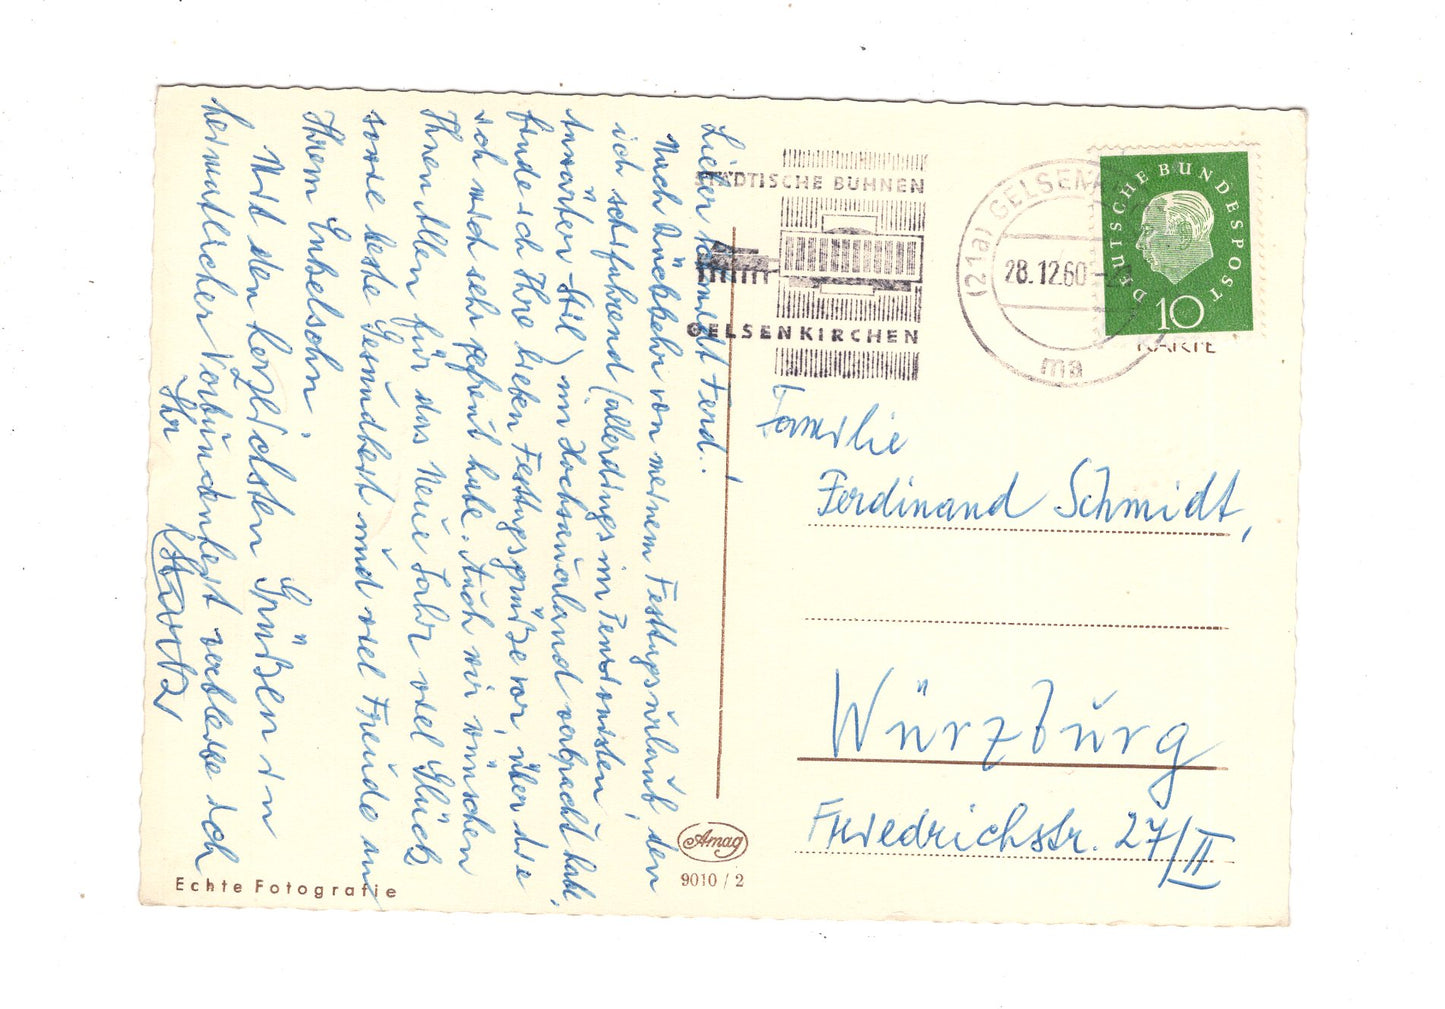 Lieber Schmidt Ferd.!
Nach Rückkehr von meinem Festtagsurlaub, den
ich schifahrend (allerdings im Pensionisten,
Anwärter-Stil) im Hochsauerland verbracht habe,
finde ich Ihre lieben Festtagsgrüße vor, über die
ich mich sehr gefreut habe. Auch wir wünschen
Ihnen Allen für das Neue Jahr viel Glück
sowie beste Gesundheit und viel Freude an
Ihrem Enkelsohn.
Mit den herzlichsten Grüßen in
heimatlicher Verbundenheit verbleibe ich
Ihr
STÄDTISCHE BÜHNEN
GELSENKIRCHEN
(21a) GELSENK
28.12.60
ma
DEUTSCHE BUNDESPOST
10
KARTE
Familie
Ferdinand Schmidt,
Würzburg
Friedrichstr. 27/II
Amag
9010 / 2
Echte Fotografie